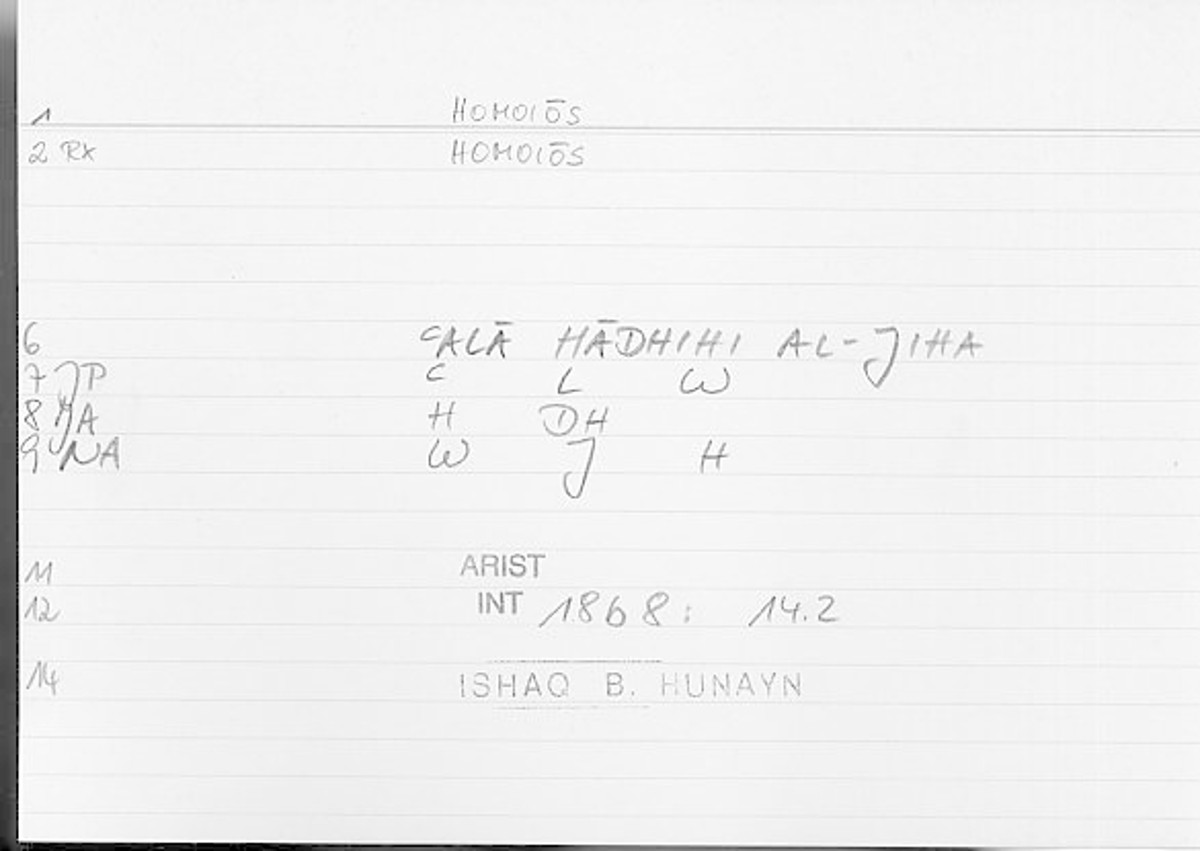 1 HOMOIŌS
2 RX HOMOIŌS
6 ʿALĀ HĀDHIHI AL-JIHA
7 JP ʿ L W
8 JA H DH
9 NA W J H
11 ARIST
12 INT 1868: 14.2
14 ISHAQ B. HUNAYN